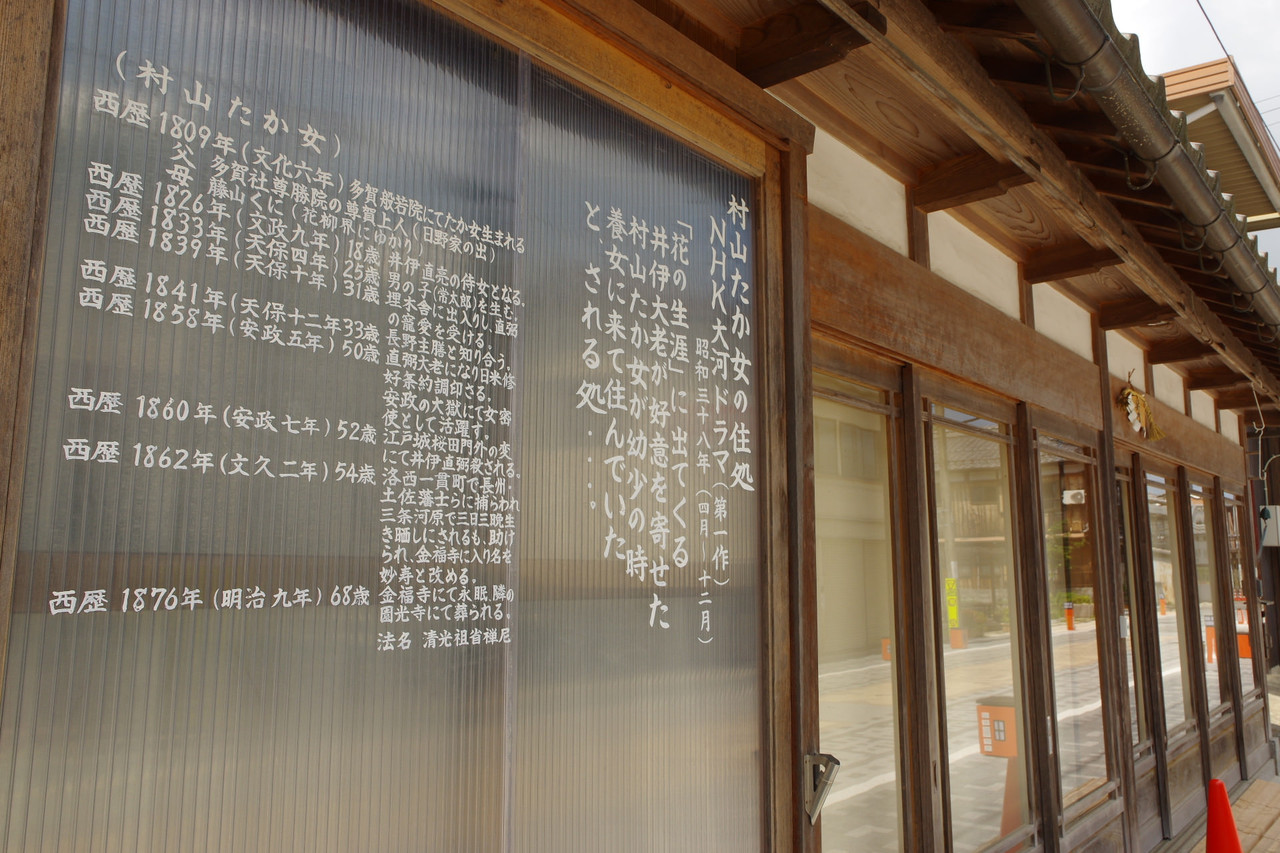 村山たか女の住処
NHK大河ドラマ(第一作)
昭和三十八年(四月~十二月)
「花の生涯」に出てくる
井伊大老が好意を寄せた
村山たか女が幼少の時
養女に来て住んでいた
と、される処・・・・。
(村山たか女)
西歴 1809年(文化六年)多賀般若院にてたか女生まれる
父 多賀社尊勝院の尊賀上人(日野家の出)
母 藤山くに(花柳界にゆかり)
西歴 1826年(文政九年)18歳 井伊直亮の侍女となる。
西歴 1833年(天保四年)25歳 男子(常太郎)を生む。
西歴 1839年(天保十年)31歳 埋の木舎に出入りし、直弼
の寵愛を受ける。
西歴 1841年(天保十二年33歳 長野主膳と知り合う。
西歴 1858年(安政五年)50歳 直弼大老になり日米修
好条約調印さる。
安政の大獄にて女密
使として活躍す。
西歴 1860年(安政七年)52歳 江戸城桜田門外の変
にて井伊直弼殺される。
西歴 1862年(文久二年)54歳 洛西一貫町で長州、
土佐藩士らに捕らわれ
三条河原で三日三晩生
き晒しにされるも、助け
られ、金福寺に入り名を
妙寿と改める。
西歴 1876年(明治九年)68歳 金福寺にて永眠、隣の
圓光寺にて葬られる。
法名 清光祖省禅尼